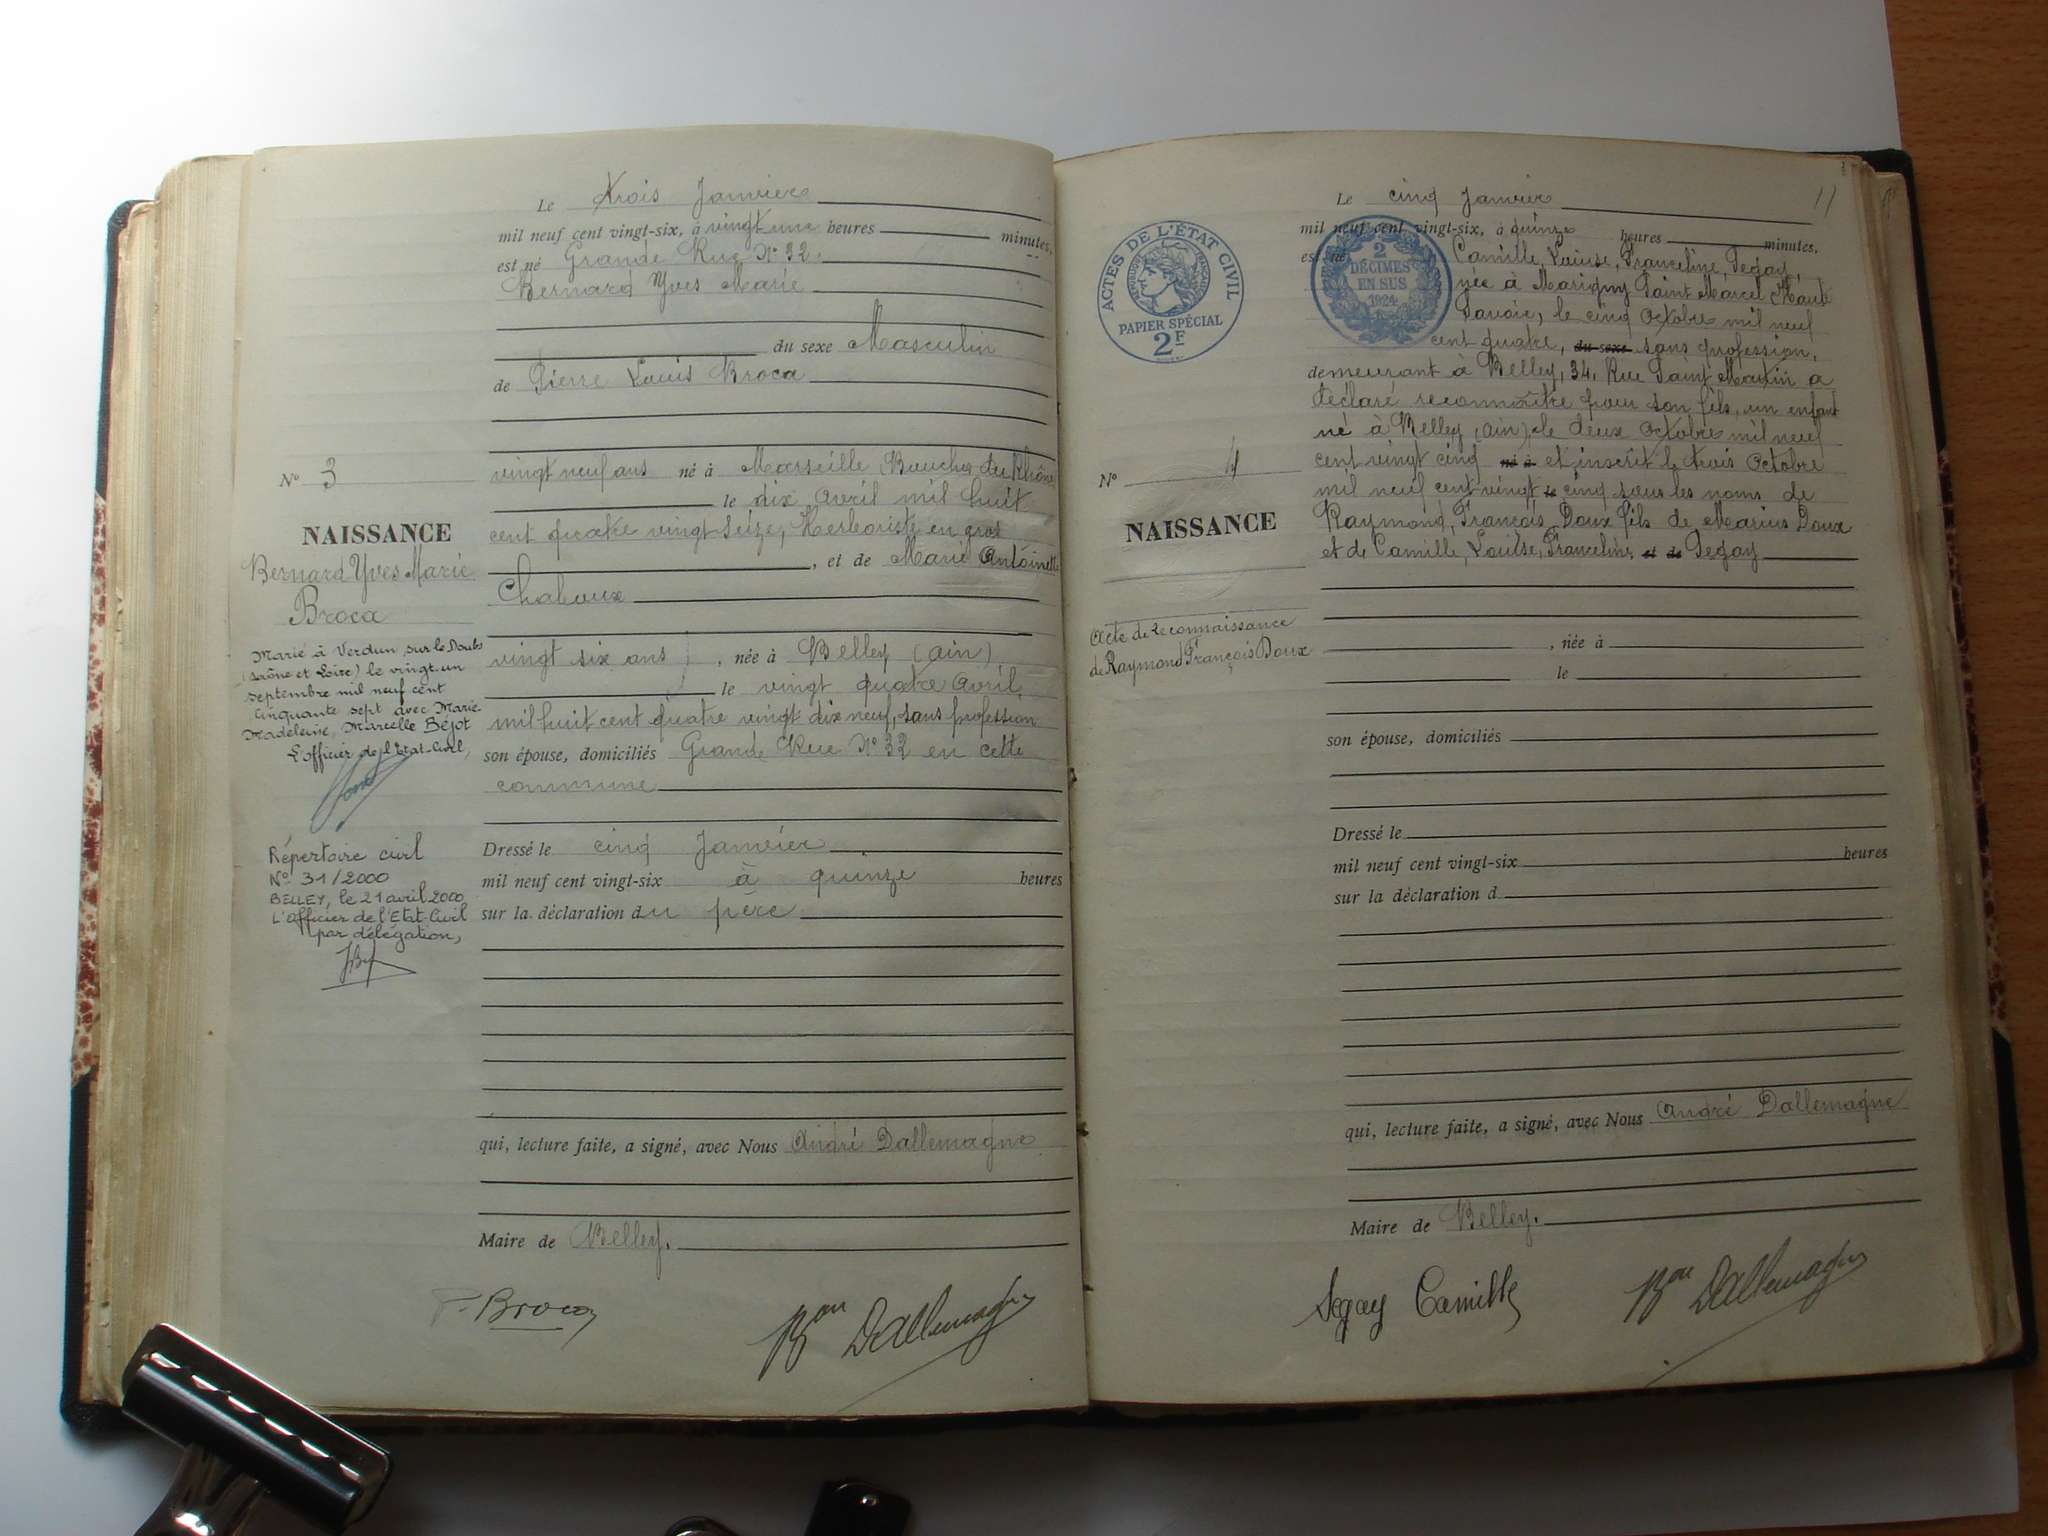 Le trois Janvier
mil neuf cent vingt-six, à vingt une heures minutes,
est né Grande Rue N° 32
Bernard Yves Marie
du sexe Masculin
de Pierre Louis Broca
vingt neuf ans né à Marseille Bouches du Rhône
le dix avril mil huit
cent quatre vingt seize, Herboriste en gros
, et de Marie Antoinette
Chaboux
vingt six ans , née à Belley (ain)
le vingt quatre Avril
mil huit cent quatre vingt dix neuf, sans profession
son épouse, domiciliés Grande Rue N° 32 en cette
commune
Dressé le cinq Janvier
mil neuf cent vingt-six à quinze heures
sur la déclaration du père
qui, lecture faite, a signé, avec Nous André Dallemagne
Maire de Belley.
P. Broca
Bon Dallemagne
N° 3
NAISSANCE
Bernard Yves Marie
Broca
Marié à Verdun sur le Doubs
(Saône et Loire) le vingt un
septembre mil neuf cent
cinquante sept avec Marie
Madeleine, Marcelle Béjot
L'officier de l'Etat-Civil,
Répertoire civil
N° 31/2000
BELLEY, le 21 avril 2000
L'Officier de l'Etat-Civil
par délégation,
11
Le cinq Janvier
mil neuf cent vingt-six, à quinze heures minutes,
est né Camille, Louise, Franceline, Segay,
née à Marigny Saint Marcel Haute
Savoie, le cinq Octobre mil neuf
cent quatre, du sexe sans profession,
demeurant à Belley, 34, Rue Saint Martin a
déclaré reconnaître pour son fils, un enfant
né à Belley (ain) le deux Octobre mil neuf
cent vingt cinq né à et inscrit le trois Octobre
mil neuf cent vingt le cinq sous les noms de
Raymond, François Doux fils de Marius Doux
et de Camille, Louise, Franceline, et de Segay
, née à
le
son épouse, domiciliés
Dressé le
mil neuf cent vingt-six heures
sur la déclaration d
qui, lecture faite, a signé, avec Nous André Dallemagne
Maire de Belley.
Segay Camille
Bon Dallemagne
ACTES DE L'ÉTAT CIVIL
RÉPUBLIQUE FRANÇAISE
PAPIER SPÉCIAL
2F
2
DÉCIMES
EN SUS
1924
N° 4
NAISSANCE
Acte de reconnaissance
de Raymond François Doux